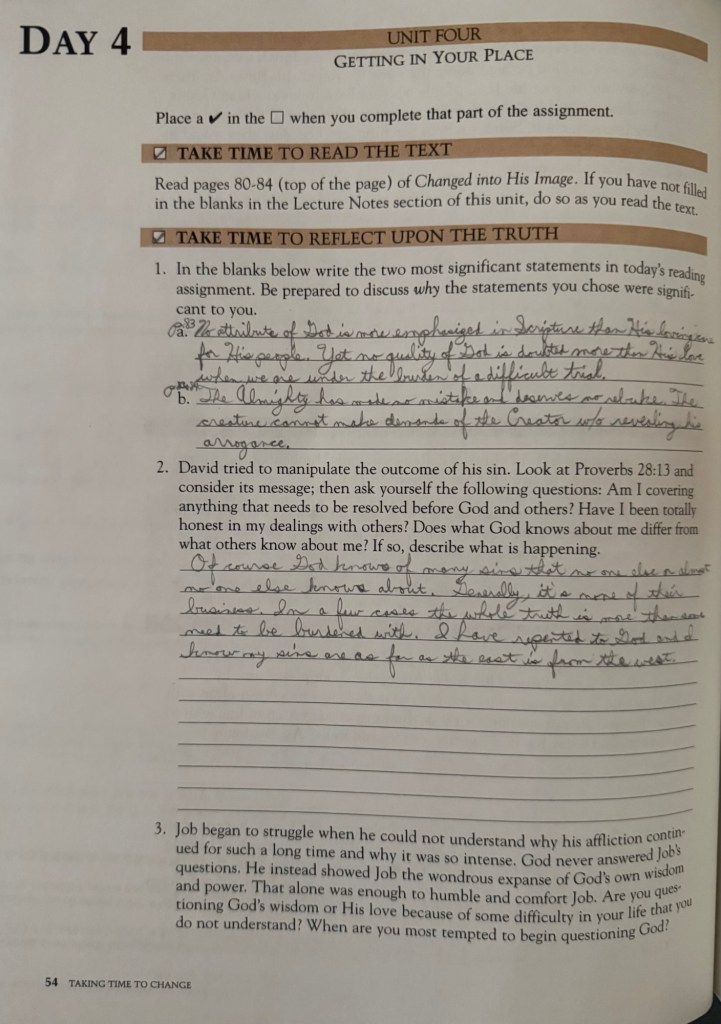 DAY 4
UNIT FOUR
GETTING IN YOUR PLACE
Place a ✔ in the ☐ when you complete that part of the assignment.
☑ TAKE TIME TO READ THE TEXT
Read pages 80-84 (top of the page) of Changed into His Image. If you have not filled
in the blanks in the Lecture Notes section of this unit, do so as you read the text.
☑ TAKE TIME TO REFLECT UPON THE TRUTH
1. In the blanks below write the two most significant statements in today's reading
assignment. Be prepared to discuss why the statements you chose were signifi-
cant to you.
a. No attribute of God is more emphasized in Scripture than His loving
for His people. Yet no quality of God is doubted more than His love
when we are under the burden of a difficult trial.
b. The Almighty has made no mistake and deserves no rebuke. The
creature cannot make demands of the Creator w/o revealing his
arrogance.
2. David tried to manipulate the outcome of his sin. Look at Proverbs 28:13 and
consider its message; then ask yourself the following questions: Am I covering
anything that needs to be resolved before God and others? Have I been totally
honest in my dealings with others? Does what God knows about me differ from
what others know about me? If so, describe what is happening.
Of course God knows of many sins that no one else or almost
no one else knows about. Generally, it's none of their
business. In a few cases the whole truth is more than
need to be burdened with. I have repented to God and I
know my sins are as far as the east is from the west.
3. Job began to struggle when he could not understand why his affliction contin-
ued for such a long time and why it was so intense. God never answered Job's
questions. He instead showed Job the wondrous expanse of God's own wisdom
and power. That alone was enough to humble and comfort Job. Are you ques-
tioning God's wisdom or His love because of some difficulty in your life that you
do not understand? When are you most tempted to begin questioning God?
54 TAKING TIME TO CHANGE